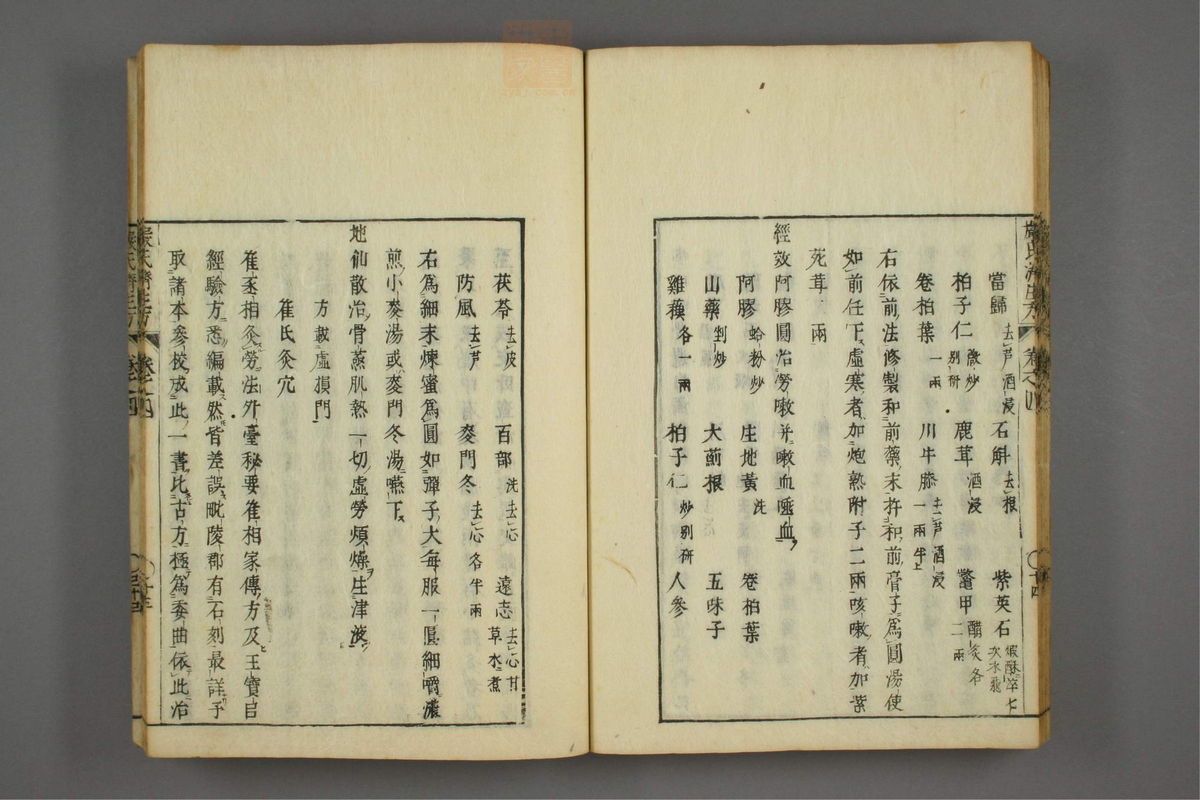 當歸 去芦酒浸 石斛 去根 紫英石 煆醋淬七次水飛
柏子仁 微炒別研 鹿茸 酒浸 鼈甲 醋炙各二兩
卷柏葉 一兩 川牛膝 去芦酒浸一兩半
右依前法修製和前藥末杵和前膏子爲圓湯使
如前任下虛寒者加炮熟附子二兩咳嗽者加紫
菀茸一兩
經效阿膠圓治勞嗽并嗽血唾血
阿膠 蛤粉炒 生地黃 洗 卷柏葉
山藥 剉炒 大薊根 五味子
雞蘓 各一兩 柏子仁 炒別研 人參
茯苓 去皮 百部 洗去心 遠志 去心甘草水煮
防風 去芦 麥門冬 去心各半兩
右爲細末煉蜜爲圓如彈子大每服一圓細嚼濃
煎小麥湯或麥門冬湯嚥下
地仙散治骨蒸肌熱一切虛勞煩燥生津液
方載虛損門
崔氏灸穴
崔丞相灸勞法外臺秘要崔相家傳方及王寶臣
經驗方悉編載然皆差誤毗陵郡有石刻最詳予
取諸本參校成此一書比古方極爲委曲依此治
嚴氏濟生方 卷之四